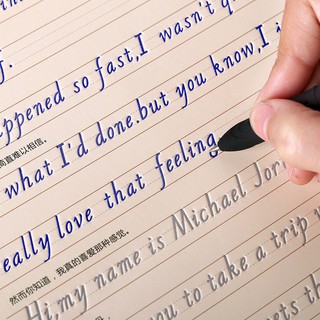 f.
ppened so fast,I wasn't q
简直难以相信。
what I'd done.but you know,I
eally love that feeling
然而你知道，我真的喜爱那种感觉。
Hi,my name is Michael Jor
you to take a trip
ets th